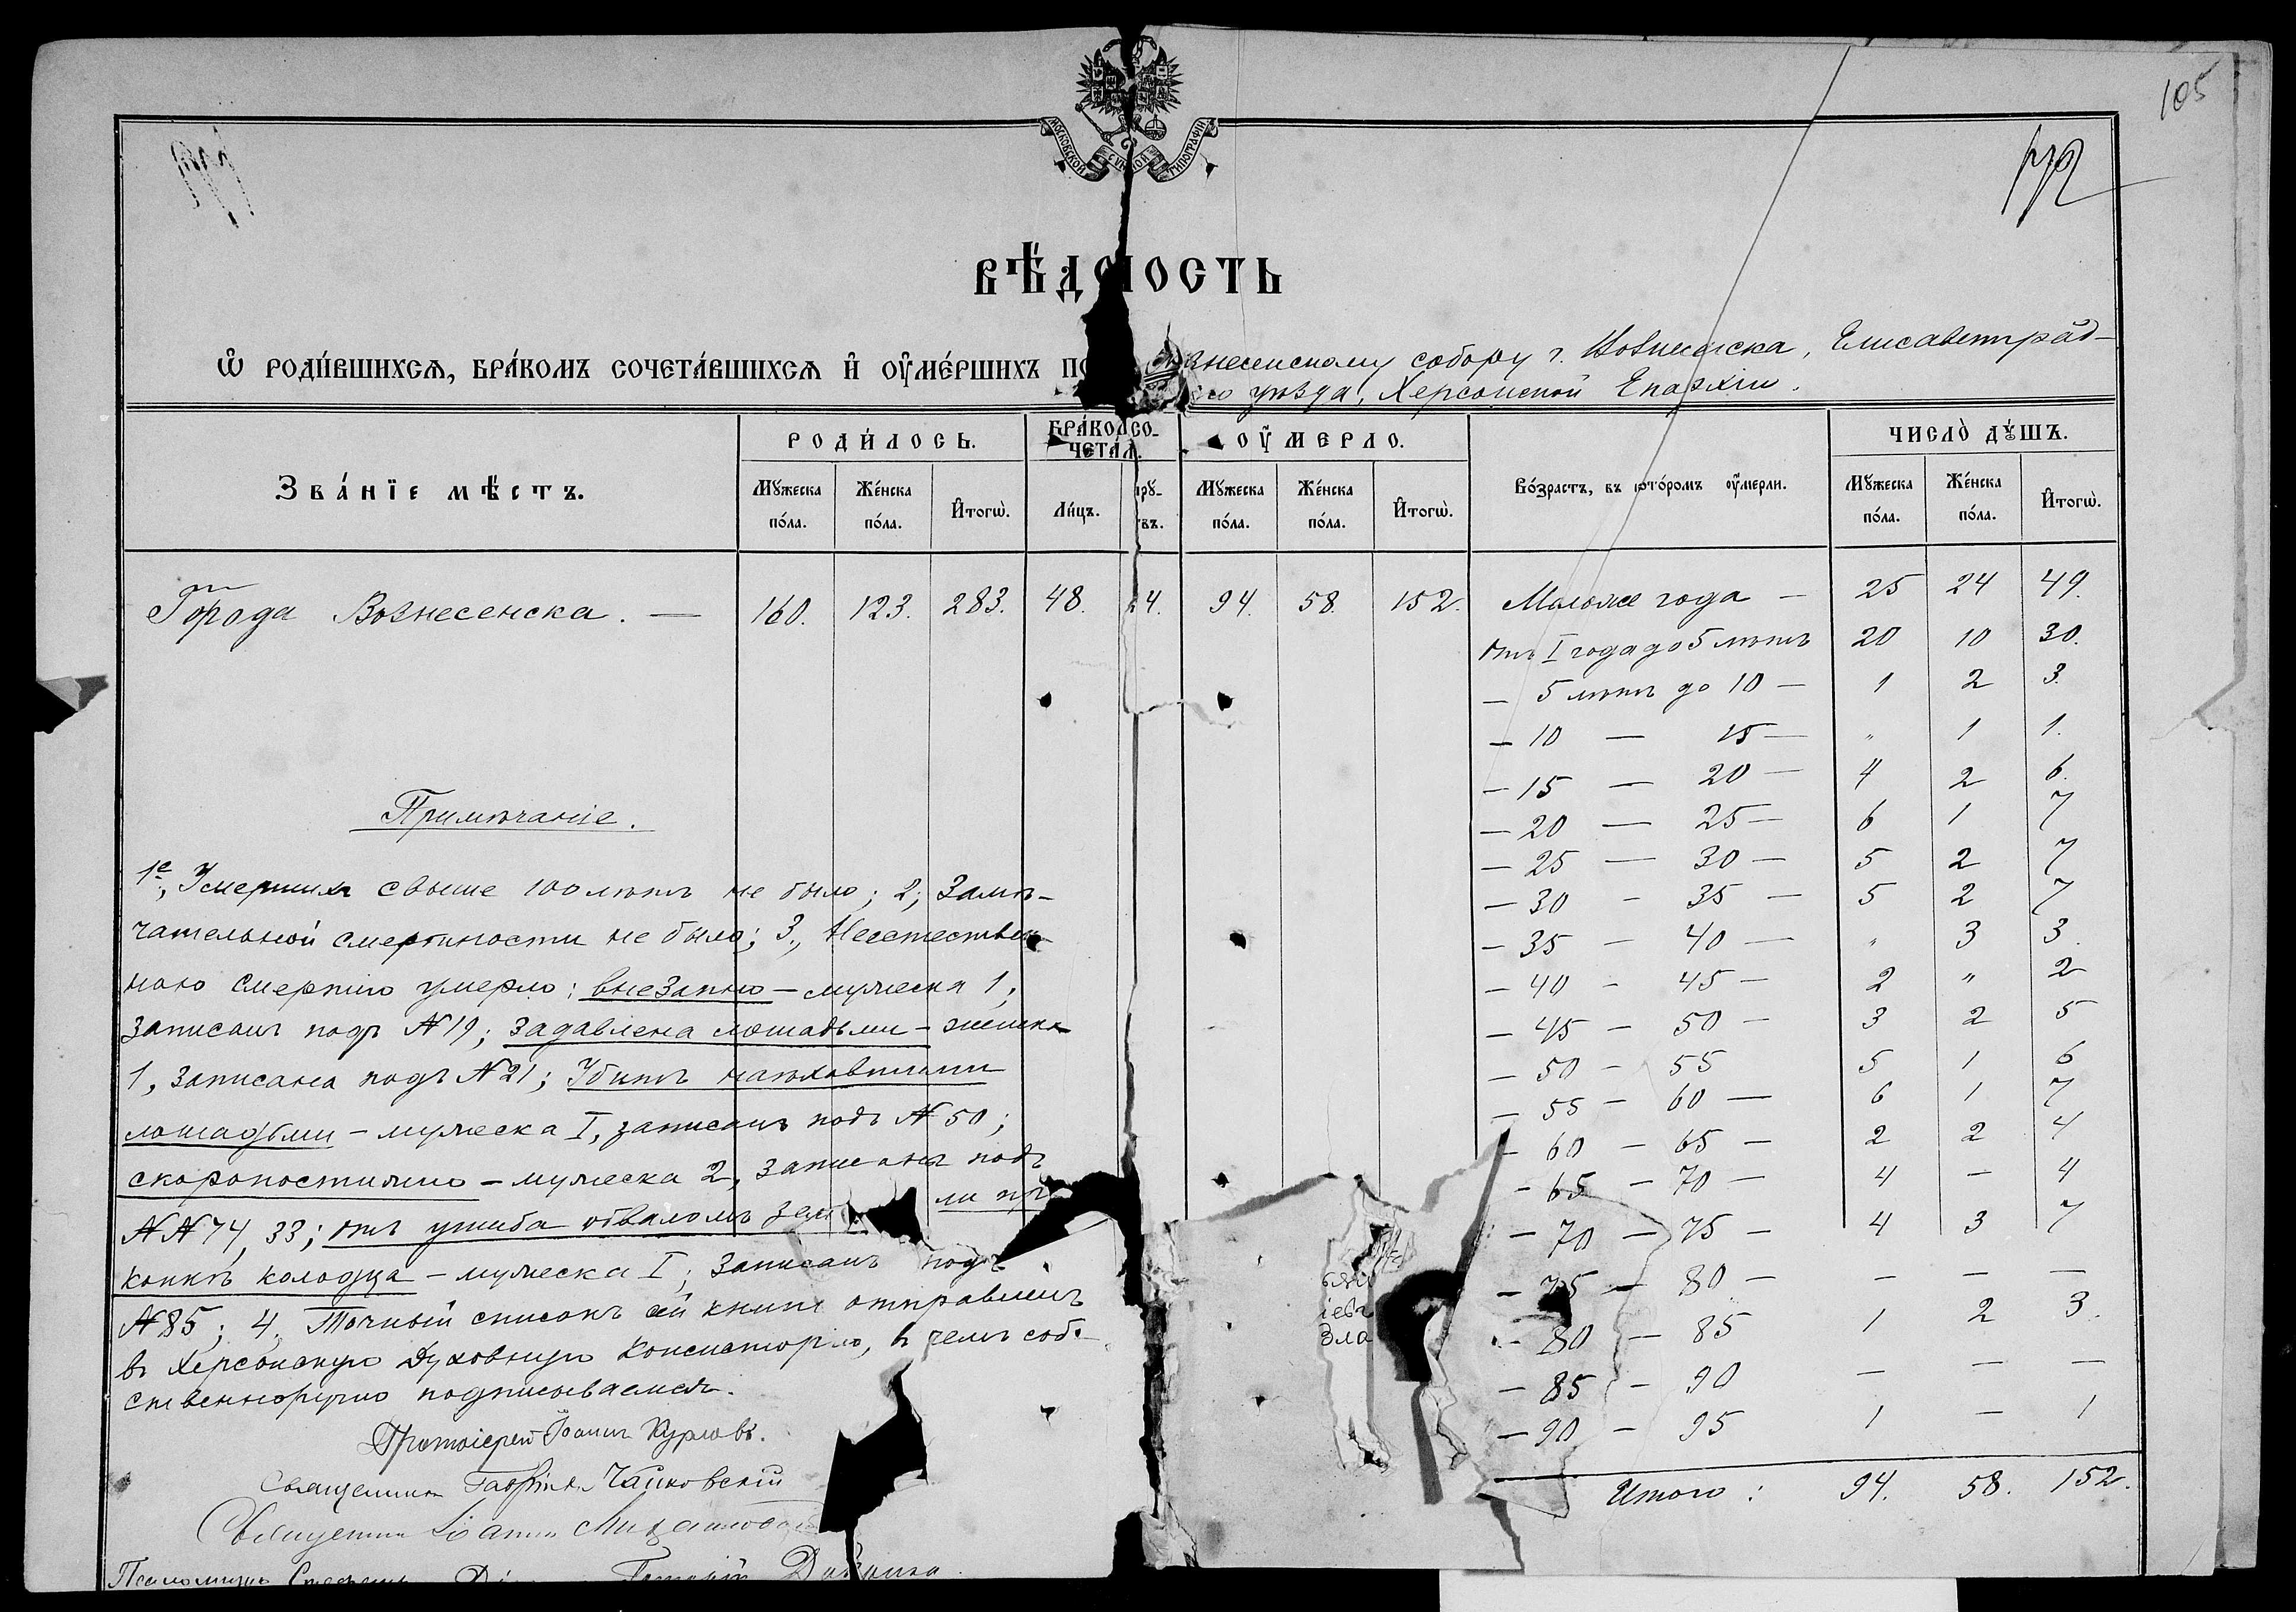 105
МОСКОВСКОЙ СѴНОД ТИПОГРАФІИ
ВѢДОМОСТЬ
Ѡ РОДИ́ВШИХСѦ, БРА́КОМЪ СОЧЕТА́ВШИХСѦ И҆ ОУ҆МЕ́РШИХЪ ПО Вознесенскому собору г. Вознесенска, Елисаветград-
го уѣзда, Херсонской Епархіи.
ЗВА́НІЕ МѢ́СТЪ.
РОДИ́ЛОСЬ.
БРА́КОМ СО-
ЧЕТА́Л.
ОУ҆́МЕРЛО.
Во́зрастъ, въ кото́ромъ оу҆́мерли.
ЧИСЛО̀ ДꙊ́ШЪ.
Мꙋ́жеска по́ла. Же́нска по́ла. И҆тогѡ̀. Ли́цъ. прꙋ- твъ. Мꙋ́жеска по́ла. Же́нска по́ла. И҆тогѡ̀. Мꙋ́жеска по́ла. Же́нска по́ла. И҆тогѡ̀.
Города Вознесенска. — 160. 123. 283. 48. 24. 94. 58. 152.
Моложе года — 25 24 49.
Отъ I года до 5 лѣтъ 20 10 30.
— 5 лѣтъ до 10 — 1 2 3.
— 10 — 15 — „ 1 1.
— 15 — 20 — 4 2 6.
— 20 — 25 — 6 1 7
— 25 — 30 — 5 2 7
— 30 — 35 — 5 2 7
— 35 — 40 — „ 3 3.
— 40 — 45 — 2 „ 2
— 45 — 50 — 3 2 5
— 50 — 55 5 1 6
— 55 — 60 — 6 1 7
— 60 — 65 — 2 2 4
— 65 — 70 — 4 — 4
— 70 — 75 — 4 3 7
— 75 — 80 — — — —
— 80 — 85 1 2 3.
— 85 — 90 — — —
— 90 — 95 1 — 1
Итого: 94. 58. 152.
Примѣчаніе.
1е, Умершихъ свыше 100 лѣтъ не было; 2, Замѣ-
чательной смертности не было; 3., Неестествен-
ною смертію умерло: внезапно — мужеска 1,
записанъ подъ №19; задавлена лошадьми — женска
1, записана подъ №21; Убитъ наѣхавшими
лошадьми — мужеска I, записанъ подъ №50;
скоропостижно — мужеска 2, записаны подъ
№№ 74, 33; отъ ушиба обваломъ зем ли при
копкѣ колодца — мужеска I; записанъ подъ
№85; 4, Точный списокъ сей книги отправленъ
въ Херсонскую Духовную Консисторію, въ чемъ соб-
ственноручно подписываемся.
Протоіерей Іоаннъ Курловъ.
Священникъ Гавріилъ Чайковскій
Священникъ Іоаннъ
Псаломщикъ Стефанъ
іевъ
Зла